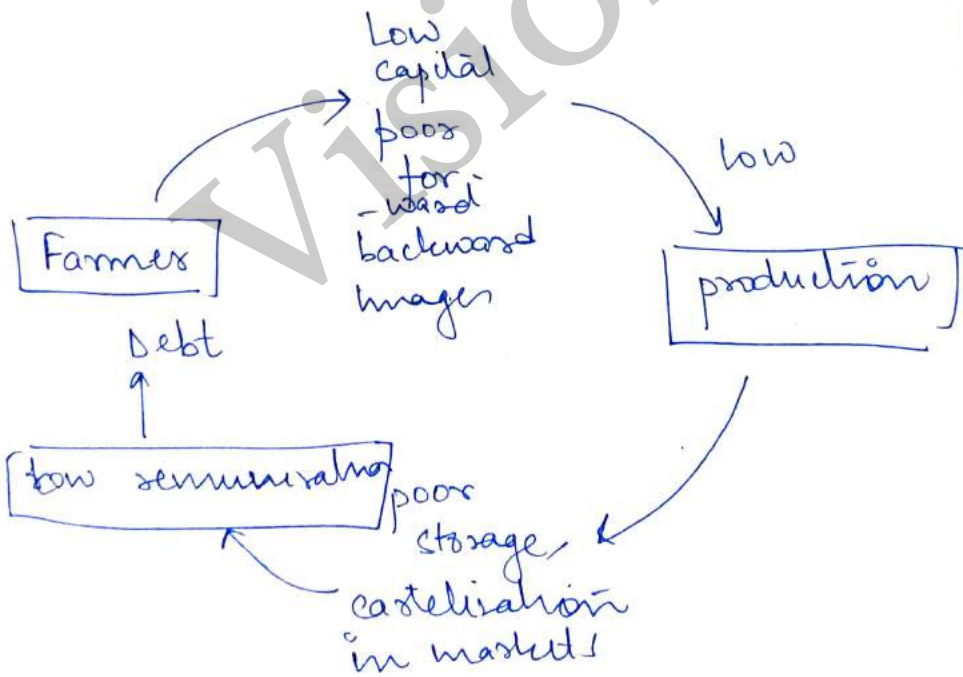 Low
capital
poor
for
-ward
backward
linkages
Farmer
low
production
Debt
Low remuneration
poor
storage,
cartelisation
in markets
Vision